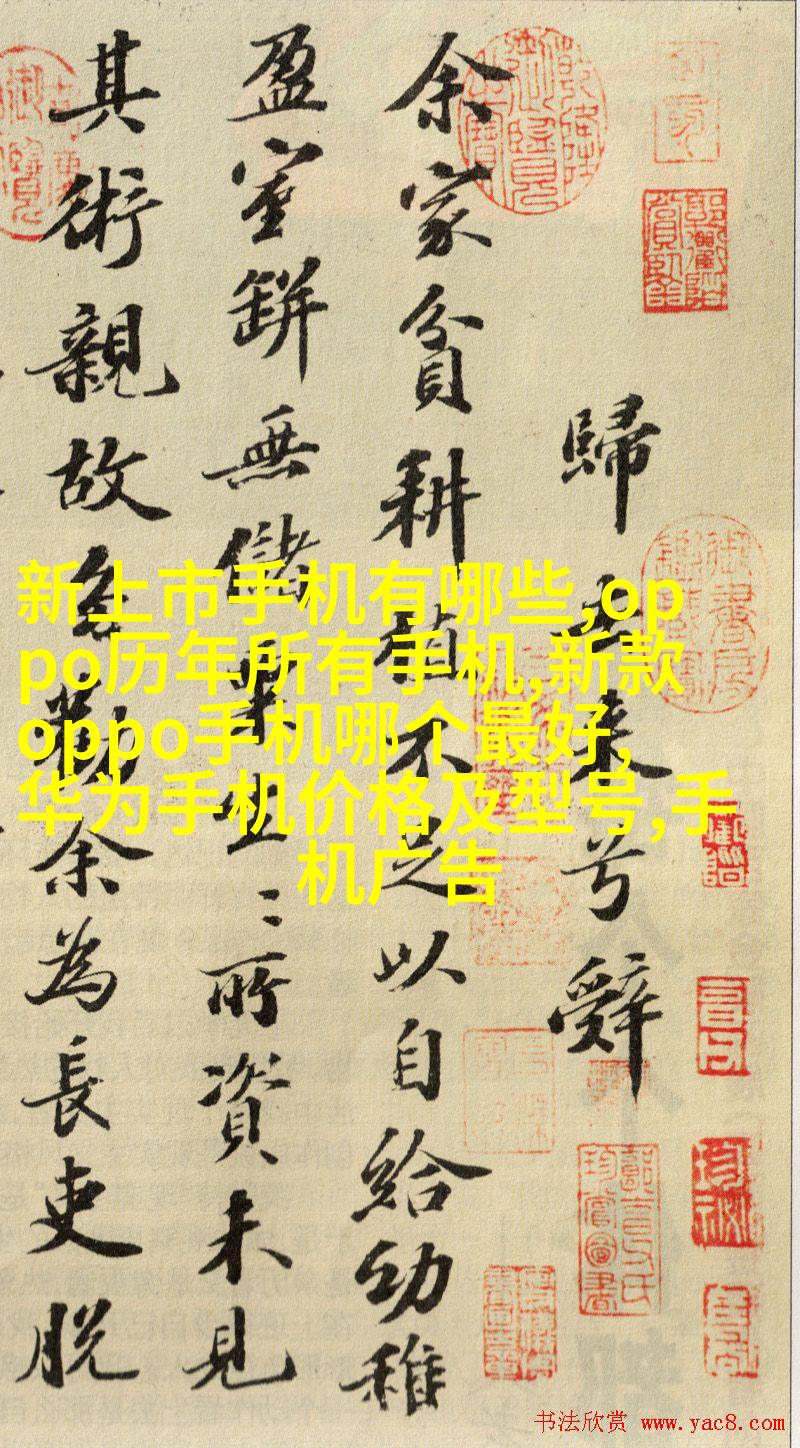 歸去来兮辭
余家貧耕植不足以自給幼稚
盈室缾無儲粟生〻所資未見
其術親故多勸余為長吏脱
新上市手机有哪些,op
po历年所有手机,新款
oppo手机哪个最好,
华为手机价格及型号,手
机广告
书法欣赏 www.yac8.com